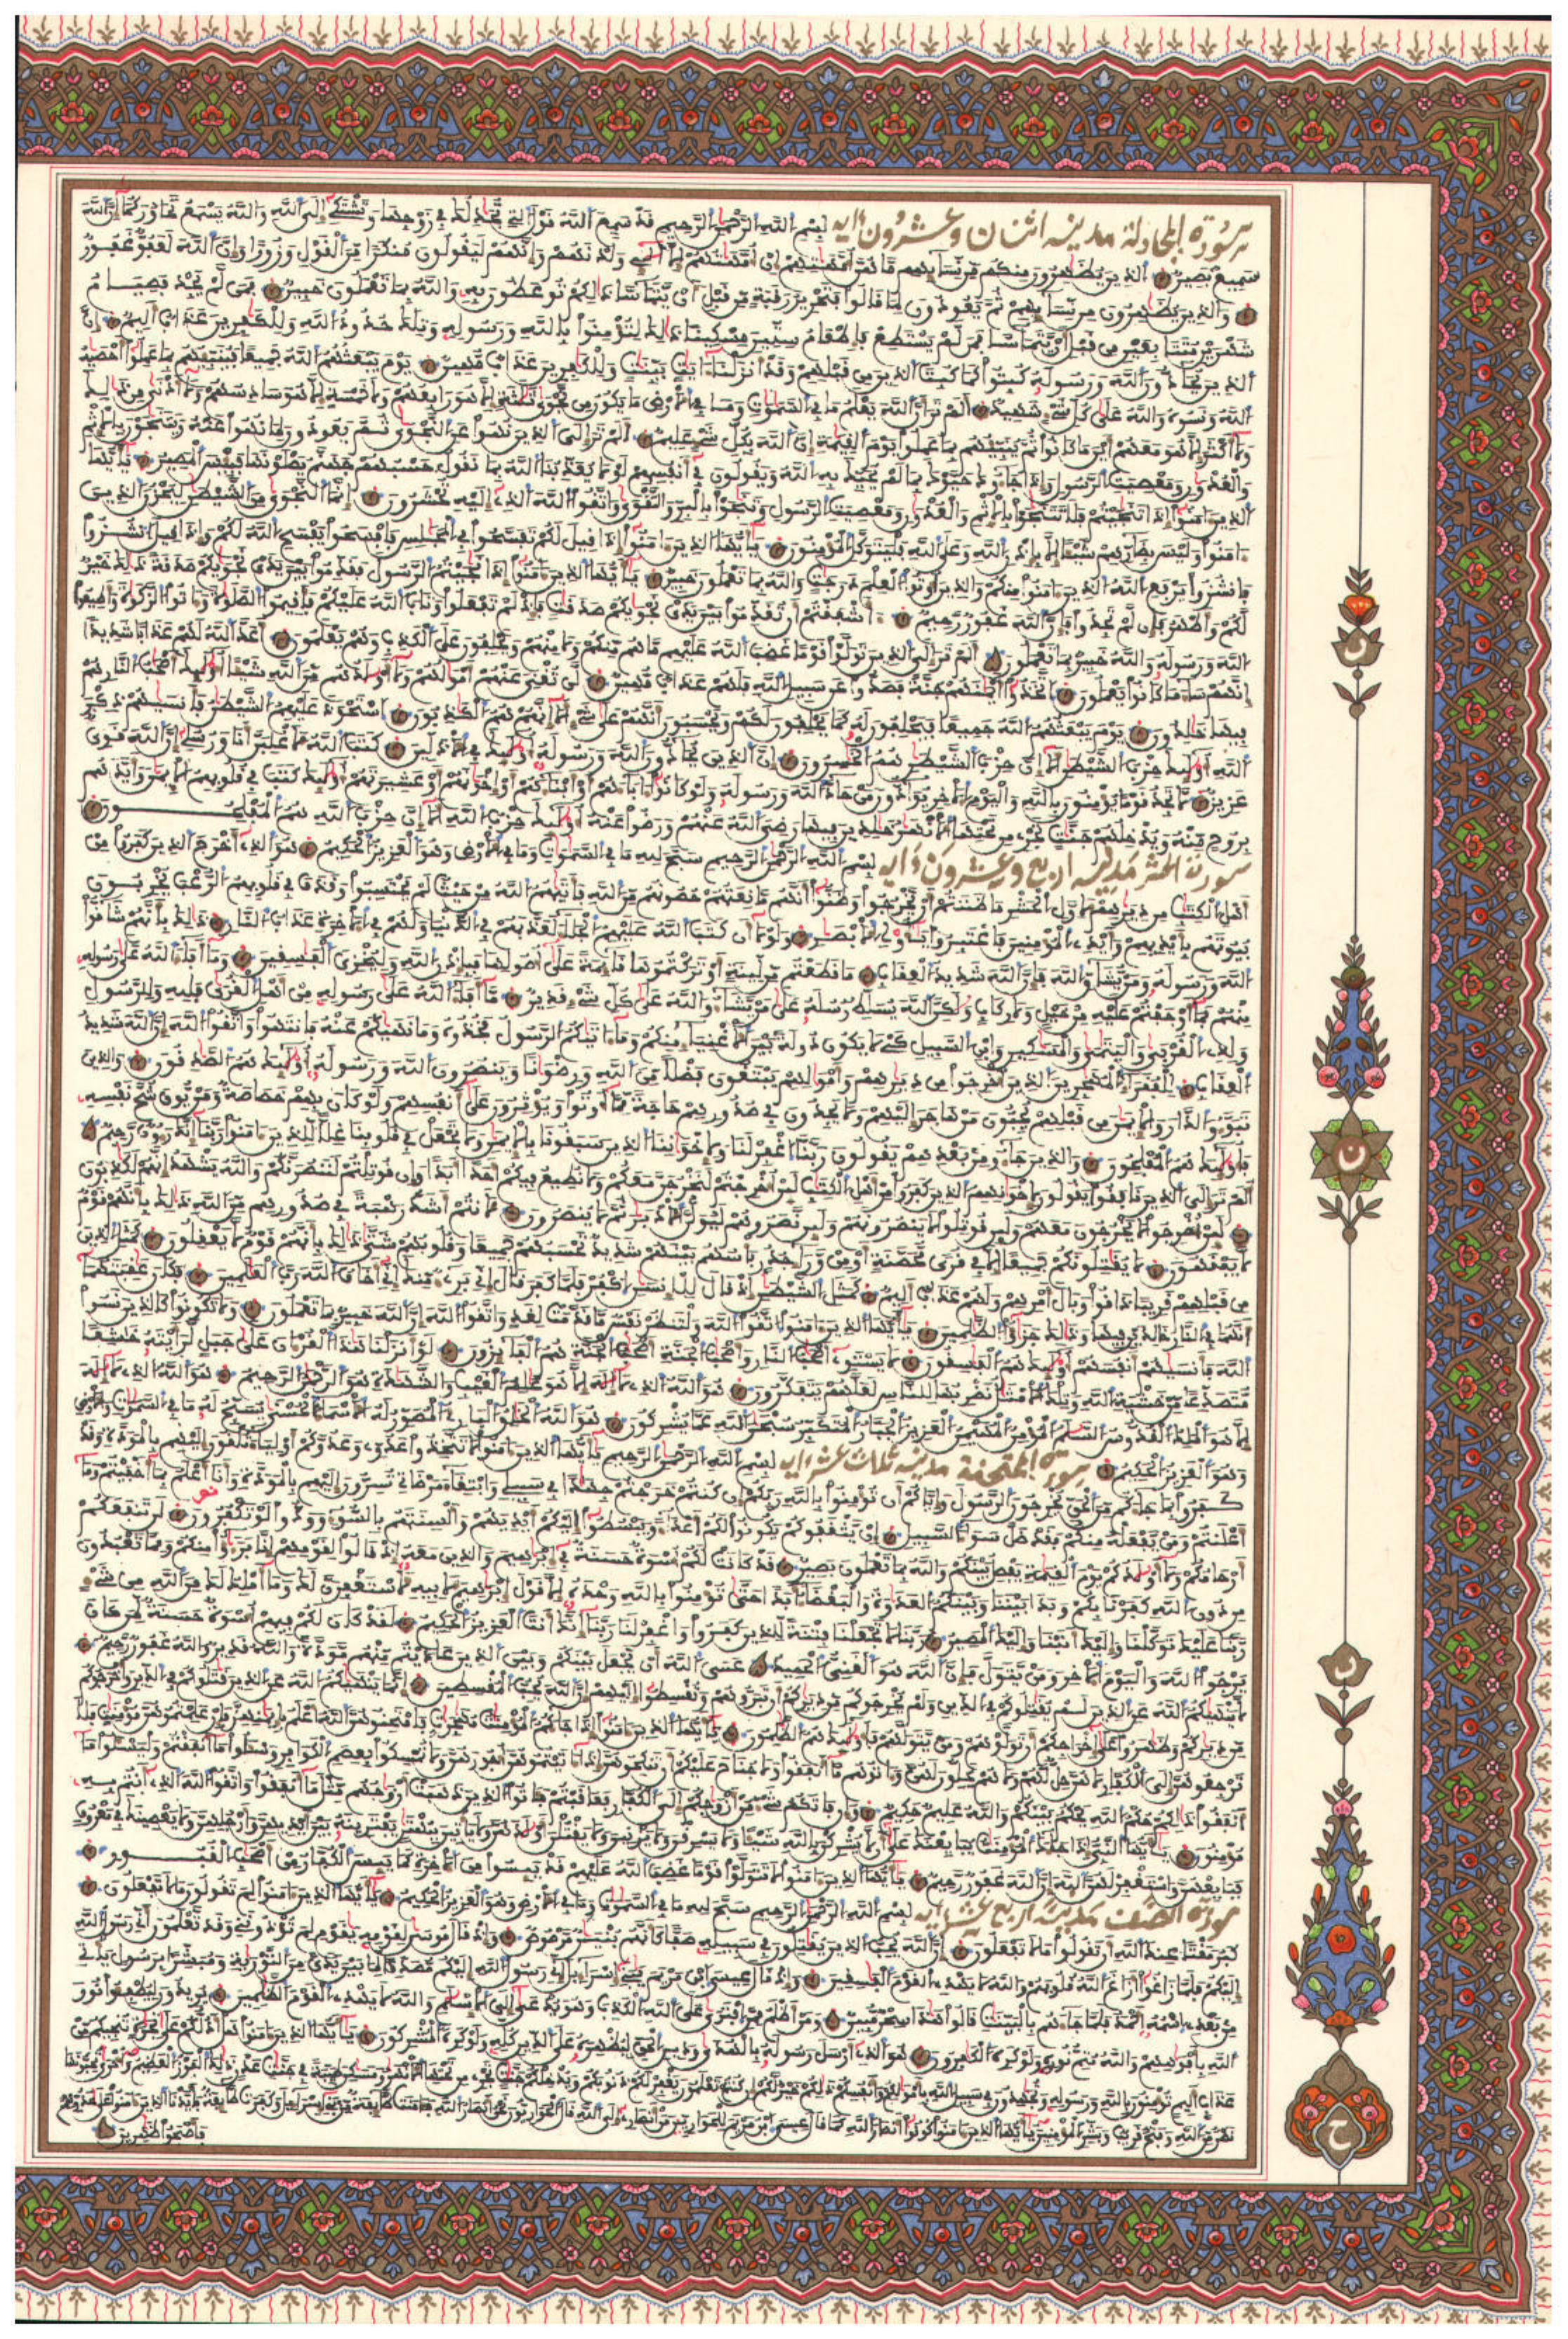 سورة المجادلة مدنية اثنان وعشرون ءاية بسم الله الرحمن الرحيم قد سمع الله قول التي تجدلك في زوجها وتشتكي إلى الله والله يسمع تحاوركما إن الله
سميع بصير الذين يظهرون منكم من نسايهم ما هن أمهتهم إن أمهتهم إلا الي ولدنهم وإنهم ليقولون منكرا من القول وزورا وإن الله لعفو غفور
والذين يظهرون من نسايهم ثم يعودون لما قالوا فتحرير رقبة من قبل أن يتماسا ذلكم توعظون به والله بما تعملون خبير فمن لم يجد فصيام
شهرين متتابعين من قبل أن يتماسا فمن لم يستطع فإطعام ستين مسكينا ذلك لتومنوا بالله ورسوله وتلك حدود الله وللكفرين عذاب أليم إن
الذين يحادون الله ورسوله كبتوا كما كبت الذين من قبلهم وقد أنزلنا ءايت بينت وللكفرين عذاب مهين يوم يبعثهم الله جميعا فينبيهم بما عملوا أحصيه
الله ونسوه والله على كل شيء شهيد ألم تر أن الله يعلم ما في السموت وما في الأرض ما يكون من نجوى ثلثة إلا هو رابعهم ولا خمسة إلا هو سادسهم ولا أدنى من ذلك
ولا أكثر إلا هو معهم أين ما كانوا ثم ينبيهم بما عملوا يوم القيمة إن الله بكل شيء عليم ألم تر إلى الذين نهوا عن النجوى ثم يعودون لما نهوا عنه ويتنجون بالإثم
والعدون ومعصيت الرسول وإذا جاءوك حيوك بما لم يحيك به الله ويقولون في أنفسهم لولا يعذبنا الله بما نقول حسبهم جهنم يصلونها فبيس المصير يأيها
الذين ءامنوا إذا تنجيتم فلا تتنجوا بالإثم والعدون ومعصيت الرسول وتنجوا بالبر والتقوى واتقوا الله الذي إليه تحشرون إنما النجوى من الشيطن ليحزن الذين
ءامنوا وليس بضارهم شيئا إلا بإذن الله وعلى الله فليتوكل المومنون يأيها الذين ءامنوا إذا قيل لكم تفسحوا في المجلس فافسحوا يفسح الله لكم وإذا قيل انشزوا
فانشزوا يرفع الله الذين ءامنوا منكم والذين أوتوا العلم درجت والله بما تعملون خبير يأيها الذين ءامنوا إذا نجيتم الرسول فقدموا بين يدي نجويكم صدقة ذلك خير
لكم وأطهر فإن لم تجدوا فإن الله غفور رحيم ءاشفقتم أن تقدموا بين يدي نجويكم صدقت فإذ لم تفعلوا وتاب الله عليكم فأقيموا الصلوة وءاتوا الزكوة وأطيعوا
الله ورسوله والله خبير بما تعملون ألم تر إلى الذين تولوا قوما غضب الله عليهم ما هم منكم ولا منهم ويحلفون على الكذب وهم يعلمون أعد الله لهم عذابا شديدا
إنهم ساء ما كانوا يعملون اتخذوا أيمنهم جنة فصدوا عن سبيل الله فلهم عذاب مهين لن تغني عنهم أمولهم ولا أولدهم من الله شيئا أوليك أصحب النار هم
فيها خلدون يوم يبعثهم الله جميعا فيحلفون له كما يحلفون لكم ويحسبون أنهم على شيء ألا إنهم هم الكذبون استحوذ عليهم الشيطن فأنسيهم ذكر
الله أوليك حزب الشيطن ألا إن حزب الشيطن هم الخسرون إن الذين يحادون الله ورسوله أوليك في الأذلين كتب الله لأغلبن أنا ورسلي إن الله قوي
عزيز لا تجد قوما يومنون بالله واليوم الأخر يوادون من حاد الله ورسوله ولو كانوا ءاباءهم أو أبناءهم أو إخونهم أو عشيرتهم أوليك كتب في قلوبهم الإيمن وأيدهم
بروح منه ويدخلهم جنت تجري من تحتها الأنهر خلدين فيها رضي الله عنهم ورضوا عنه أوليك حزب الله ألا إن حزب الله هم المفلحون
سورة الحشر مدنية اربع وعشرون ءاية بسم الله الرحمن الرحيم سبح لله ما في السموت وما في الأرض وهو العزيز الحكيم هو الذي أخرج الذين كفروا من
أهل الكتب من ديرهم لأول الحشر ما ظننتم أن يخرجوا وظنوا أنهم مانعتهم حصونهم من الله فأتيهم الله من حيث لم يحتسبوا وقذف في قلوبهم الرعب يخربون
بيوتهم بأيديهم وأيدي المومنين فاعتبروا يأولي الأبصر ولولا أن كتب الله عليهم الجلاء لعذبهم في الدنيا ولهم في الأخرة عذاب النار ذلك بأنهم شاقوا
الله ورسوله ومن يشاق الله فإن الله شديد العقاب ما قطعتم من لينة أو تركتموها قايمة على أصولها فبإذن الله وليخزي الفسقين وما أفاء الله على رسوله
منهم فما أوجفتم عليه من خيل ولا ركاب ولكن الله يسلط رسله على من يشاء والله على كل شيء قدير ما أفاء الله على رسوله من أهل القرى فلله وللرسول
ولذي القربى واليتمى والمسكين وابن السبيل كي لا يكون دولة بين الأغنياء منكم وما ءاتيكم الرسول فخذوه وما نهيكم عنه فانتهوا واتقوا الله إن الله شديد
العقاب للفقراء المهجرين الذين أخرجوا من ديرهم وأمولهم يبتغون فضلا من الله ورضونا وينصرون الله ورسوله أوليك هم الصدقون والذين
تبوءو الدار والإيمن من قبلهم يحبون من هاجر إليهم ولا يجدون في صدورهم حاجة مما أوتوا ويوثرون على أنفسهم ولو كان بهم خصاصة ومن يوق شح نفسه
فأوليك هم المفلحون والذين جاءو من بعدهم يقولون ربنا اغفر لنا ولإخوننا الذين سبقونا بالإيمن ولا تجعل في قلوبنا غلا للذين ءامنوا ربنا إنك رءوف رحيم
ألم تر إلى الذين نافقوا يقولون لإخونهم الذين كفروا من أهل الكتب لين أخرجتم لنخرجن معكم ولا نطيع فيكم أحدا أبدا وإن قوتلتم لننصرنكم والله يشهد إنهم لكذبون
لين أخرجوا لا يخرجون معهم ولين قوتلوا لا ينصرونهم ولين نصروهم ليولن الأدبر ثم لا ينصرون لأنتم أشد رهبة في صدورهم من الله ذلك بأنهم قوم
لا يفقهون لا يقتلونكم جميعا إلا في قرى محصنة أو من وراء جدر بأسهم بينهم شديد تحسبهم جميعا وقلوبهم شتى ذلك بأنهم قوم لا يعقلون كمثل الذين
من قبلهم قريبا ذاقوا وبال أمرهم ولهم عذاب أليم كمثل الشيطن إذ قال للإنسن اكفر فلما كفر قال إني بريء منك إني أخاف الله رب العلمين فكان عقبتهما
أنهما في النار خلدين فيها وذلك جزؤا الظلمين يأيها الذين ءامنوا اتقوا الله ولتنظر نفس ما قدمت لغد واتقوا الله إن الله خبير بما تعملون ولا تكونوا كالذين نسوا
الله فأنسيهم أنفسهم أوليك هم الفسقون لا يستوي أصحب النار وأصحب الجنة أصحب الجنة هم الفايزون لو أنزلنا هذا القرءان على جبل لرأيته خشعا
متصدعا من خشية الله وتلك الأمثل نضربها للناس لعلهم يتفكرون هو الله الذي لا إله إلا هو علم الغيب والشهدة هو الرحمن الرحيم هو الله الذي لا إله
إلا هو الملك القدوس السلم المومن المهيمن العزيز الجبار المتكبر سبحن الله عما يشركون هو الله الخلق الباري المصور له الأسماء الحسنى يسبح له ما في السموت والأرض
وهو العزيز الحكيم سورة الممتحنة مدنية ثلاث عشر ءاية بسم الله الرحمن الرحيم يأيها الذين ءامنوا لا تتخذوا عدوي وعدوكم أولياء تلقون إليهم بالمودة وقد
كفروا بما جاءكم من الحق يخرجون الرسول وإياكم أن تومنوا بالله ربكم إن كنتم خرجتم جهدا في سبيلي وابتغاء مرضاتي تسرون إليهم بالمودة وأنا أعلم بما أخفيتم وما
أعلنتم ومن يفعله منكم فقد ضل سواء السبيل إن يثقفوكم يكونوا لكم أعداء ويبسطوا إليكم أيديهم وألسنتهم بالسوء وودوا لو تكفرون لن تنفعكم
أرحامكم ولا أولدكم يوم القيمة يفصل بينكم والله بما تعملون بصير قد كانت لكم إسوة حسنة في إبرهيم والذين معه إذ قالوا لقومهم إنا برءؤا منكم ومما تعبدون
من دون الله كفرنا بكم وبدا بيننا وبينكم العدوة والبغضاء أبدا حتى تومنوا بالله وحده إلا قول إبرهيم لأبيه لأستغفرن لك وما أملك لك من الله من شيء
ربنا عليك توكلنا وإليك أنبنا وإليك المصير ربنا لا تجعلنا فتنة للذين كفروا واغفر لنا ربنا إنك أنت العزيز الحكيم لقد كان لكم فيهم إسوة حسنة لمن كان
يرجوا الله واليوم الأخر ومن يتول فإن الله هو الغني الحميد عسى الله أن يجعل بينكم وبين الذين عاديتم منهم مودة والله قدير والله غفور رحيم
لا ينهيكم الله عن الذين لم يقتلوكم في الدين ولم يخرجوكم من ديركم أن تبروهم وتقسطوا إليهم إن الله يحب المقسطين إنما ينهيكم الله عن الذين قتلوكم في الدين وأخرجوكم
من ديركم وظهروا على إخراجكم أن تولوهم ومن يتولهم فأوليك هم الظلمون يأيها الذين ءامنوا إذا جاءكم المومنت مهجرت فامتحنوهن الله أعلم بإيمنهن فإن علمتموهن مومنت فلا
ترجعوهن إلى الكفار لا هن حل لهم ولا هم يحلون لهن وءاتوهم ما أنفقوا ولا جناح عليكم أن تنكحوهن إذا ءاتيتموهن أجورهن ولا تمسكوا بعصم الكوافر وسئلوا ما أنفقتم وليسئلوا ما
أنفقوا ذلكم حكم الله يحكم بينكم والله عليم حكيم وإن فاتكم شيء من أزوجكم إلى الكفار فعاقبتم فئاتوا الذين ذهبت أزوجهم مثل ما أنفقوا واتقوا الله الذي أنتم به
مومنون يأيها النبيء إذا جاءك المومنت يبايعنك على أن لا يشركن بالله شيئا ولا يسرقن ولا يزنين ولا يقتلن أولدهن ولا ياتين ببهتن يفترينه بين أيديهن وأرجلهن ولا يعصينك في معروف
فبايعهن واستغفر لهن الله إن الله غفور رحيم يأيها الذين ءامنوا لا تتولوا قوما غضب الله عليهم قد ييسوا من الأخرة كما ييس الكفار من أصحب القبور
سورة الصف مدنية اربع عشر ءاية بسم الله الرحمن الرحيم سبح لله ما في السموت وما في الأرض وهو العزيز الحكيم يأيها الذين ءامنوا لم تقولون ما لا تفعلون
كبر مقتا عند الله أن تقولوا ما لا تفعلون إن الله يحب الذين يقتلون في سبيله صفا كأنهم بنين مرصوص وإذ قال موسى لقومه يقوم لم توذونني وقد تعلمون أني رسول الله
إليكم فلما زاغوا أزاغ الله قلوبهم والله لا يهدي القوم الفسقين وإذ قال عيسى ابن مريم يبني إسراءيل إني رسول الله إليكم مصدقا لما بين يدي من التورية ومبشرا برسول ياتي
من بعدي اسمه أحمد فلما جاءهم بالبينت قالوا هذا سحر مبين ومن أظلم ممن افترى على الله الكذب وهو يدعى إلى الإسلم والله لا يهدي القوم الظلمين يريدون ليطفئوا نور
الله بأفوههم والله متم نوره ولو كره الكفرون هو الذي أرسل رسوله بالهدى ودين الحق ليظهره على الدين كله ولو كره المشركون يأيها الذين ءامنوا هل أدلكم على تجرة تنجيكم من
عذاب أليم تومنون بالله ورسوله وتجهدون في سبيل الله بأمولكم وأنفسكم ذلكم خير لكم إن كنتم تعلمون يغفر لكم ذنوبكم ويدخلكم جنت تجري من تحتها الأنهر ومسكن طيبة في جنت عدن ذلك الفوز العظيم وأخرى تحبونها
نصر من الله وفتح قريب وبشر المومنين يأيها الذين ءامنوا كونوا أنصارا لله كما قال عيسى ابن مريم للحوارين من أنصاري إلى الله قال الحواريون نحن أنصار الله فئامنت طايفة من بني إسراءيل وكفرت طايفة فأيدنا الذين ءامنوا على عدوهم
فأصبحوا ظهرين